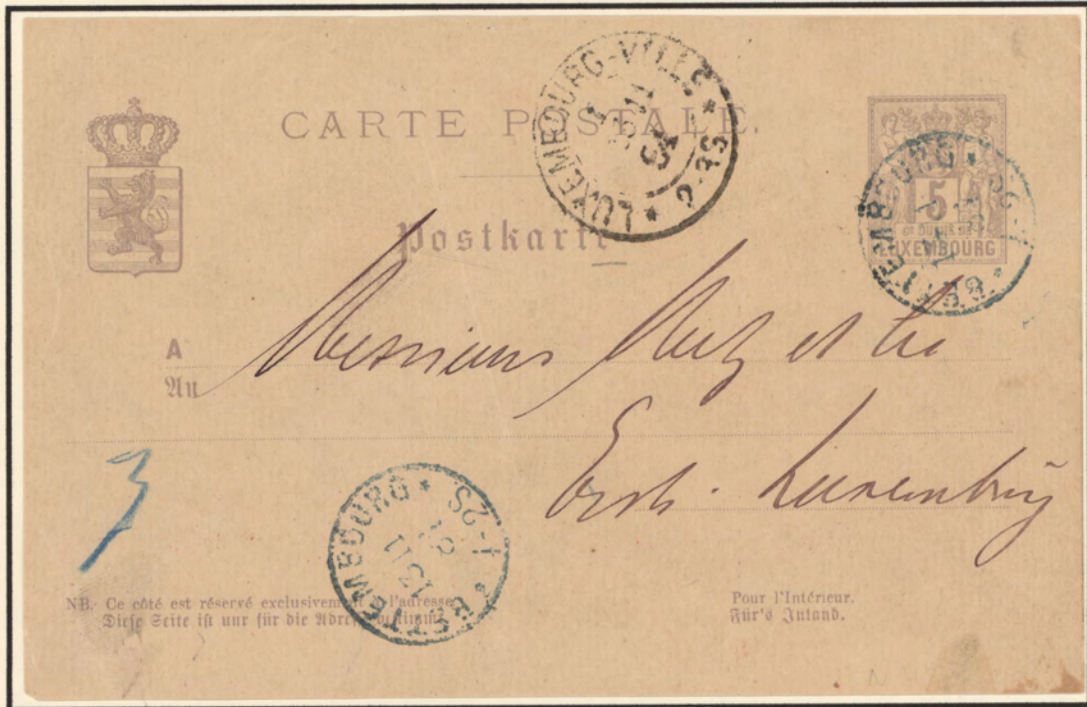 CARTE POSTALE.
Postkarte
LUXEMBOURG-VILLE * 2-3S *
5
GD DUCHÉ DE
LUXEMBOURG
BETTEMBOURG *
A
An
Messieurs Metz et Cie
Esch. Luxemburg
3
* BETTEMBOURG * 1-2S
13 11
NB. Ce côté est réservé exclusivement à l'adresse
Diese Seite ist nur für die Adresse bestimmt.
Pour l'Intérieur.
Für's Inland.